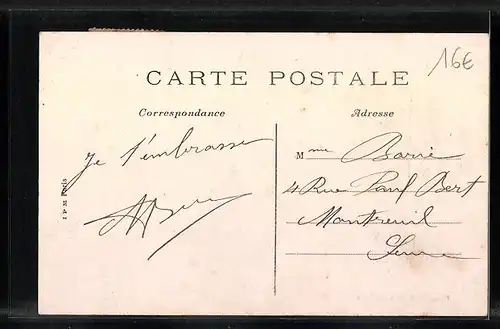 16€
CARTE POSTALE
Correspondance
Adresse
Je t'embrasse
Mme Barié
4 Rue Paul Bert
Montreuil
Seine
Paris